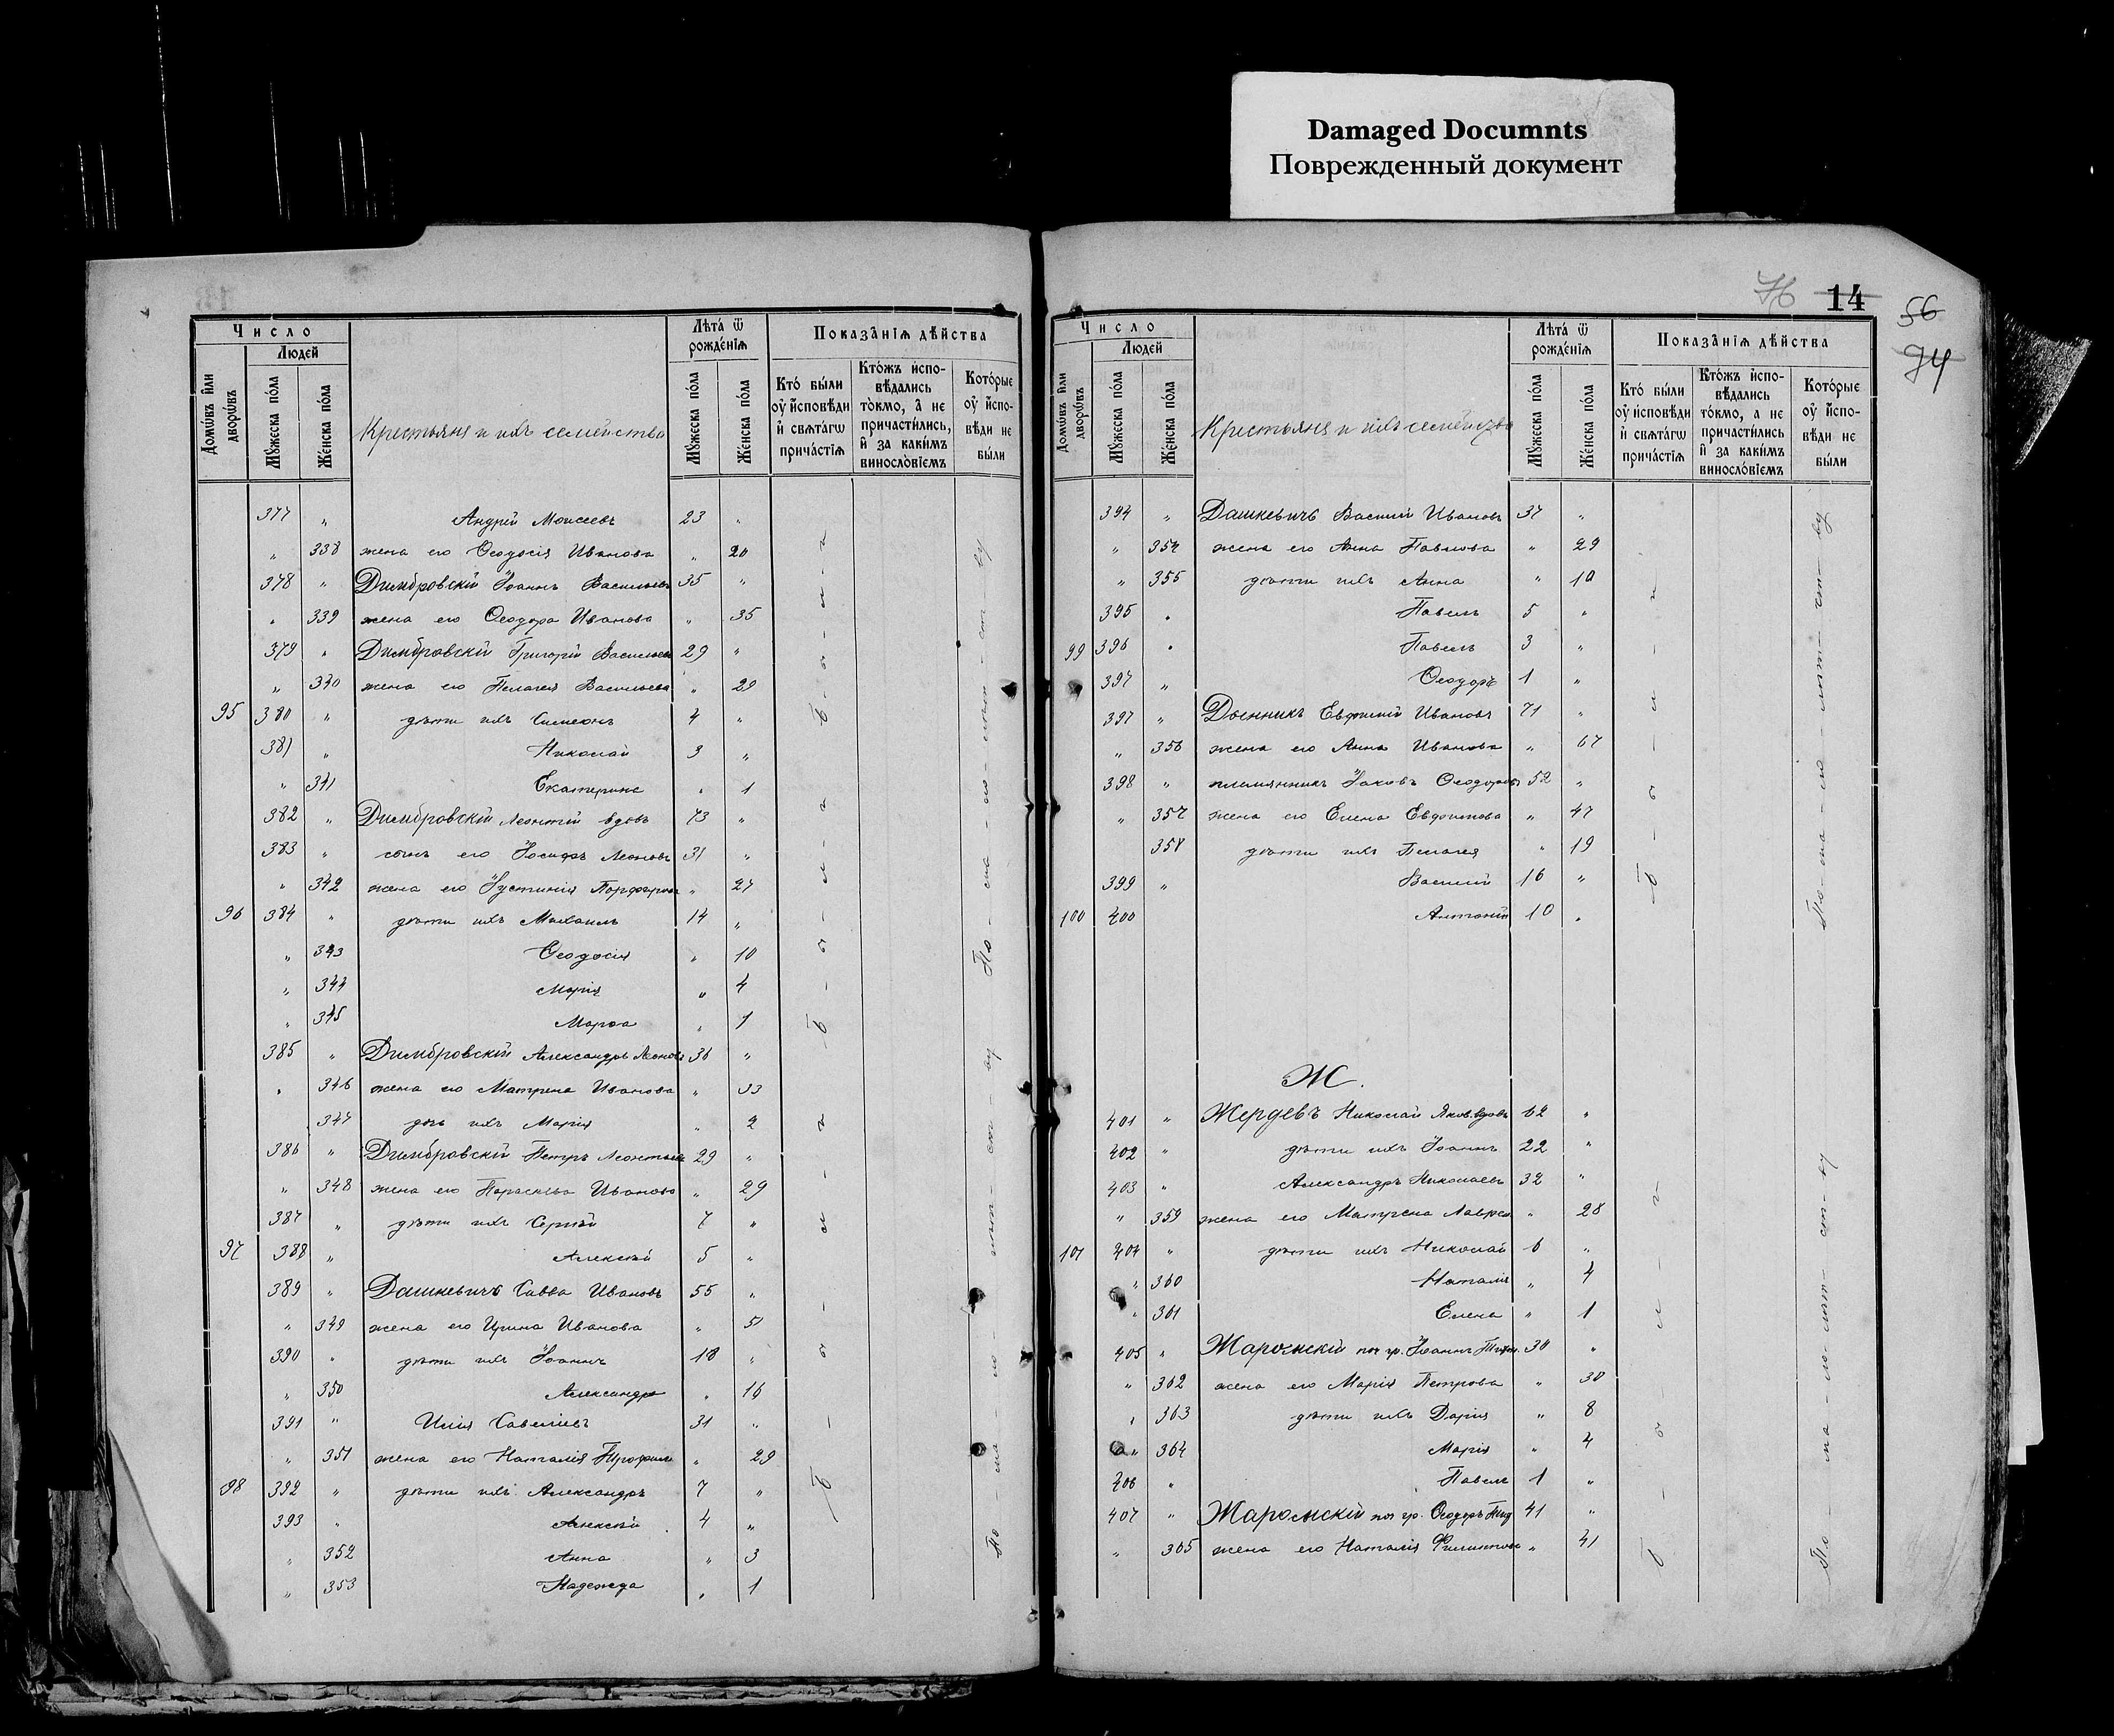 Damaged Documnts
Поврежденный документ
76 14 56
74
Число
Людей
Домѡвъ и҆лѝ дворѡ́въ
Мꙋ́жеска по́ла
Же́нска по́ла
Крестьяне и ихъ семейства
Лѣта́ ѿ рожде́нїѧ
Мꙋ́жеска по́ла
Же́нска по́ла
Показа̑нїѧ дѣ́йства
Кто́ бы́ли оу҆ и҆сповѣ́ди и҆ свѧта́гѡ прича́стїѧ
Кто́жъ и҆спо-вѣ́дались то́кмо, а҆ не причасти́лись, и҆ за каки́мъ виносло́вїемъ
Кото́рые оу҆ и҆спо-вѣ́ди не бы́ли
377 " Андрей Моисеевъ 23 "
" 338 жена его Ѳеодосія Иванова " 20
378 " Димбровскій Іоаннъ Васильевъ 35 "
" 339 жена его Ѳеодора Иванова " 35
379 " Димбровскій Григорій Васильевъ 29 "
" 340 жена его Пелагея Васильева " 29
95 380 " дѣти ихъ Симеонъ 4 "
381 " Николай 3 "
" 341 Екатерина " 1
382 " Димбровскій Леонтій вдовъ 73 "
383 " сынъ его Іосифъ Леонтьевъ 31 "
" 342 жена его Іустинія " 27
96 384 " дѣти ихъ Михаилъ 14 "
" 343 Ѳеодосія " 10
" 344 Марія " 4
" 345 Марѳа " 1
385 " Димбровскій Александръ 36 "
" 346 жена его Матрена Иванова " 33
347 дочь ихъ Марія " 2
386 " Димбровскій Петръ Леонтьевъ 29 "
" 348 жена его Параскева Иванова " 29
387 " дѣти ихъ Сергѣй 7 "
97 388 " Алексѣй 5 "
389 " Дашкевичъ Савва Ивановъ 55 "
" 349 жена его Ирина Иванова " 51
390 " дѣти ихъ Іоаннъ 18 "
" 350 Александра " 16
391 " Илія Савеліевъ 31 "
" 351 жена его Наталія " 29
98 392 " дѣти ихъ Александръ 7 "
393 " Алексѣй 4 "
" 352 Анна " 3
" 353 Надежда " 1
Число
Людей
Домѡвъ и҆лѝ дворѡ́въ
Мꙋ́жеска по́ла
Же́нска по́ла
Крестьяне и ихъ семейства
Лѣта́ ѿ рожде́нїѧ
Мꙋ́жеска по́ла
Же́нска по́ла
Показа̑нїѧ дѣ́йства
Кто́ бы́ли оу҆ и҆сповѣ́ди и҆ свѧта́гѡ прича́стїѧ
Кто́жъ и҆спо-вѣ́дались то́кмо, а не причасти́лись и҆ за каки́мъ виносло́вїемъ
Кото́рые оу҆ и҆спо-вѣ́ди не бы́ли
394 " Дашкевичъ Василій Ивановъ 37 "
" 354 жена его Анна Павлова " 29
" 355 дѣти ихъ Анна " 10
395 " Павелъ 5 "
99 396 " Павелъ 3 "
397 " Ѳеодоръ 1 "
397 " Евфимій Ивановъ 71 "
" 356 жена его Анна Иванова " 67
398 " племянникъ Іаковъ Ѳеодоровъ 52 "
" 357 жена его Елена Евфимова " 47
358 дѣти ихъ Пелагея " 19
399 " Василій 16 "
100 400 Антоній 10 "
Ж.
401 " Жердевъ Николай Яков. вдовъ 62 "
402 " дѣти ихъ Іоаннъ 22 "
403 " Александръ Николаевъ 32 "
" 359 жена его Матрена Лаврен. " 28
101 404 " дѣти ихъ Николай 6 "
" 360 Наталія " 4
" 361 Елена " 1
405 " Іоаннъ 30 "
" 362 жена его Марія Петрова " 30
" 363 дѣти ихъ Дарія " 8
" 364 Марія " 4
406 " Павелъ 1 "
407 " Ѳеодоръ 41 "
" 365 жена его Наталія Филиппова " 41